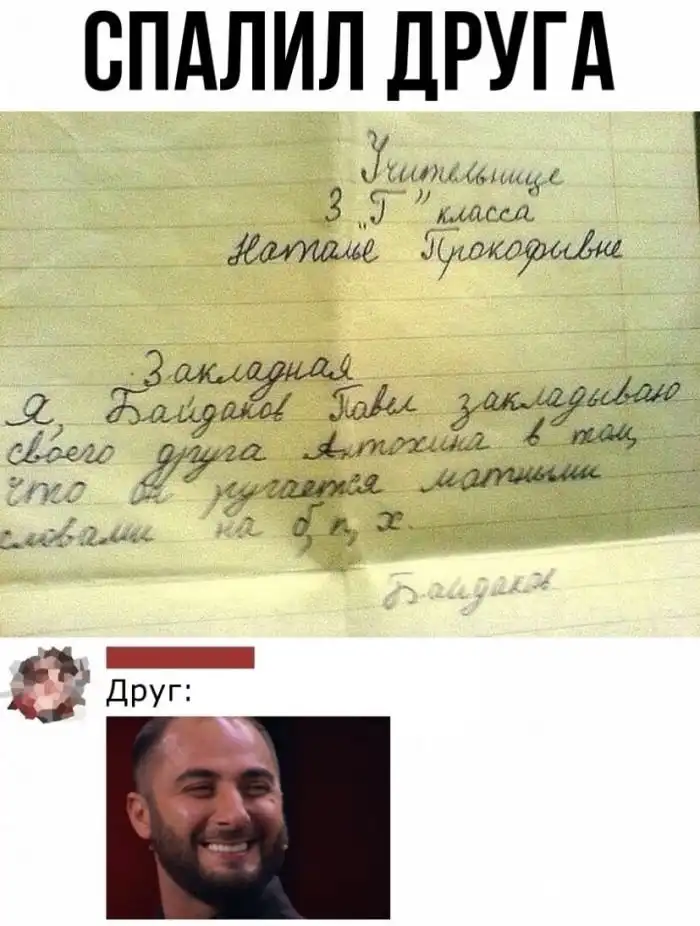 СПАЛИЛ ДРУГА
Учительнице
3 "Г" класса
Наталье Прокофывне
Закладная
Я, Байдаков Павел закладываю
своего друга Антохина в том,
что он ругается матными
словами на б, п, х.
Байдаков
Друг: